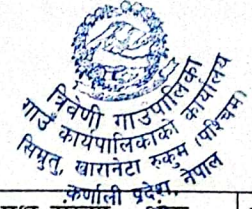 त्रिवेणी गाउँपालिका
गाउँ कार्यपालिकाको कार्यालय
सिम्रुतु, खारानेटा रुकुम (पश्चिम)
कर्णाली प्रदेश, नेपाल